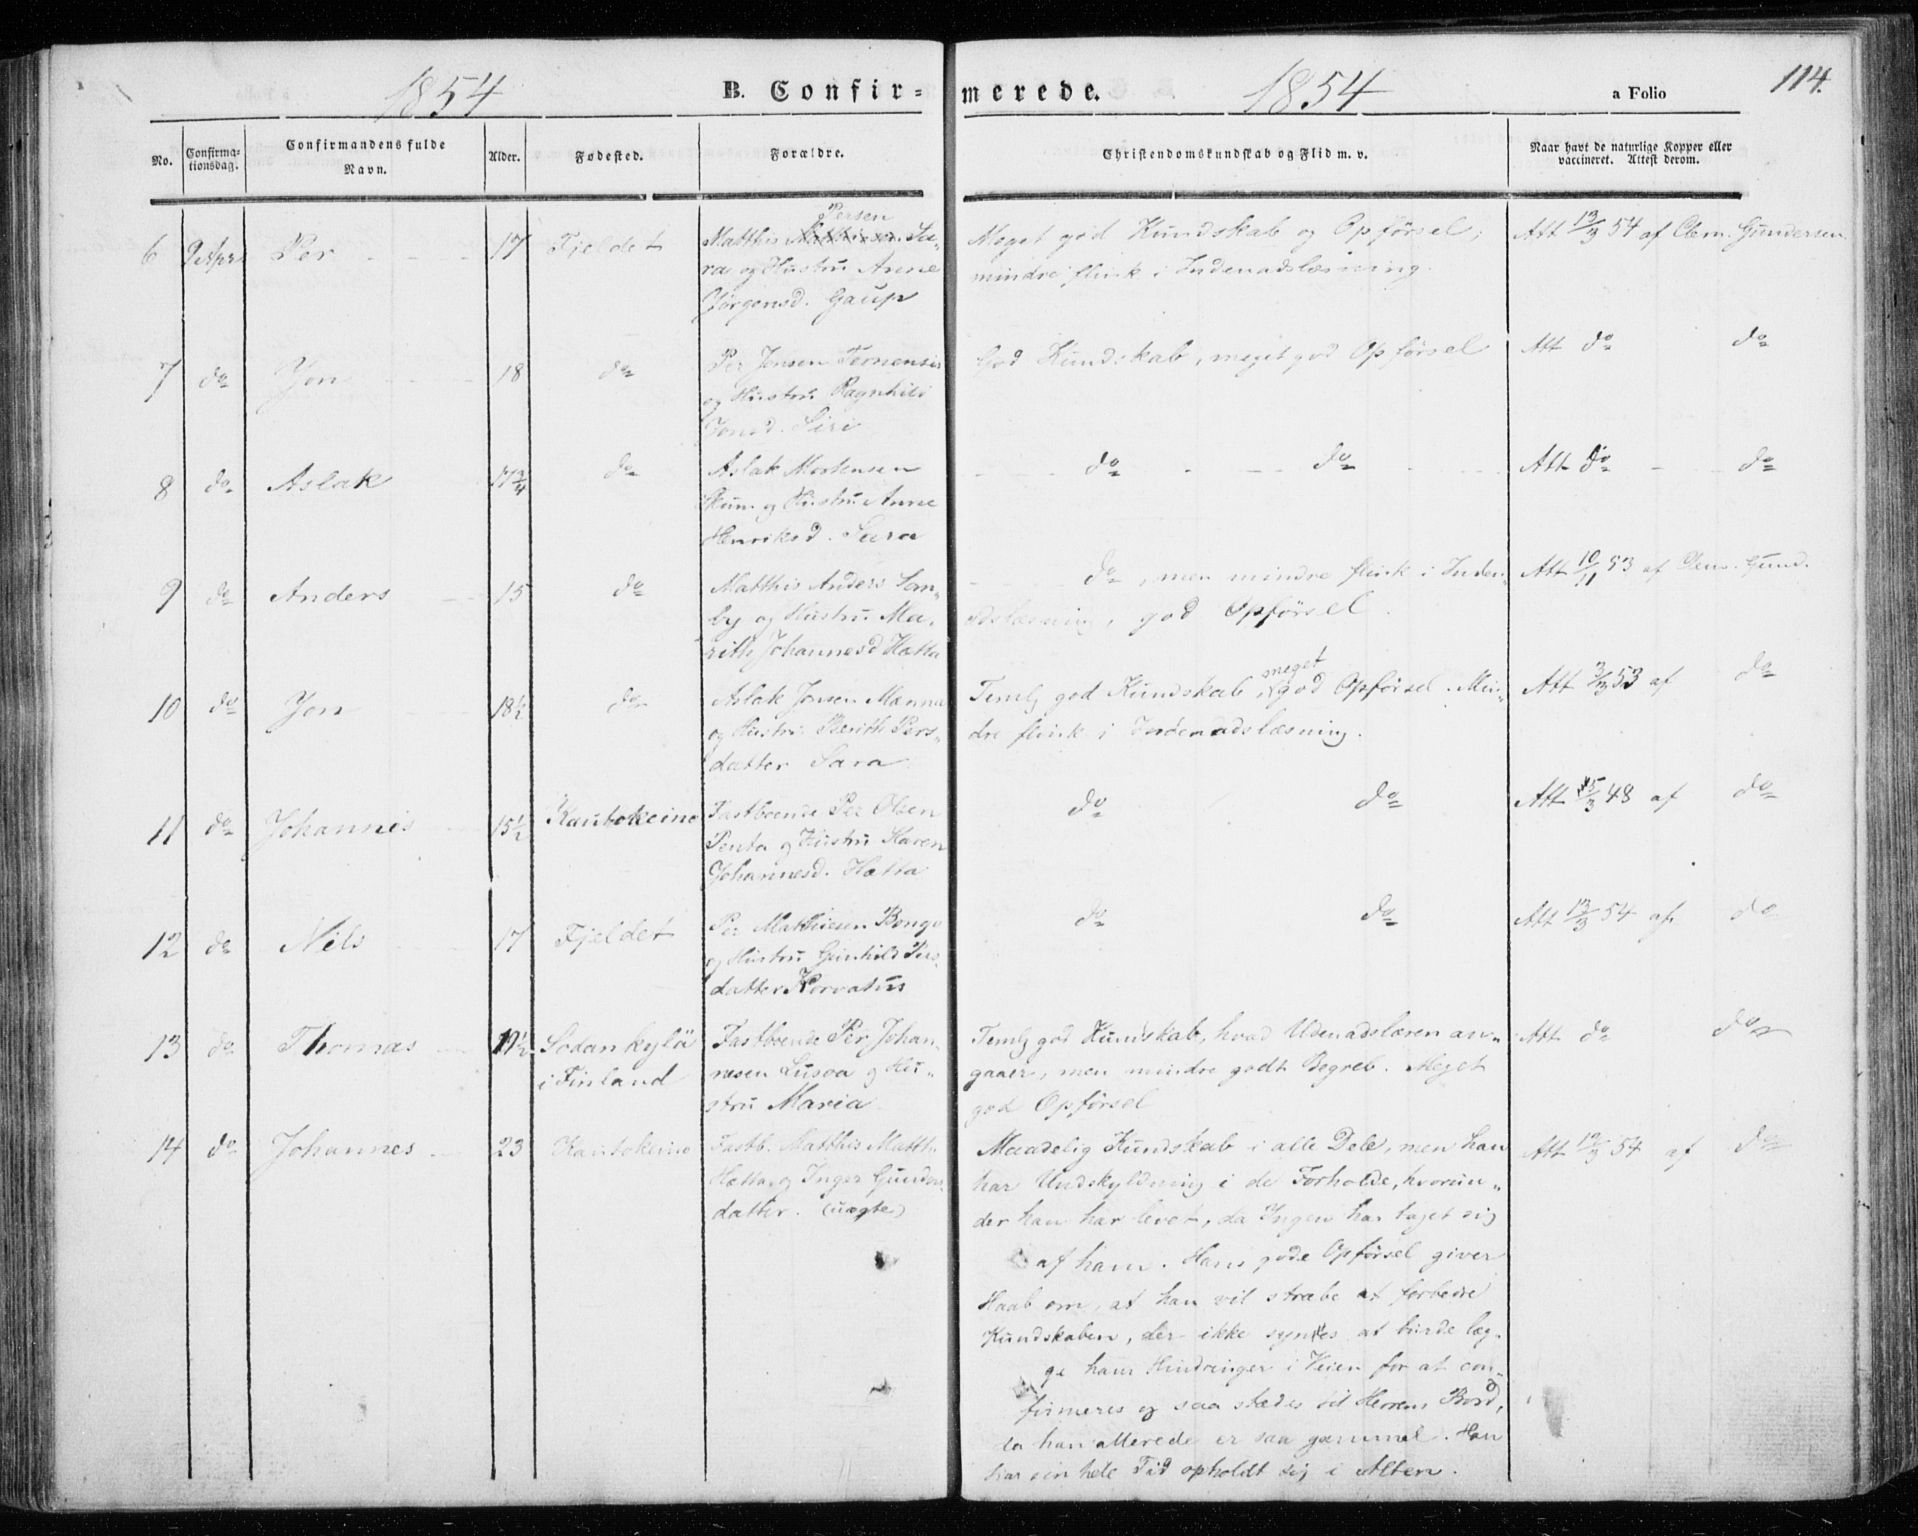 1854 B. Confir- merede. 1854 a Folio 114.
No. Confirma-tionsdag. Confirmandens fulde Navn. Alder. Fødested. Forældre. Christendomskundskab og Flid m. v. Naar havt de naturlige Kopper eller vaccineret. Attest derom.
6 9 Apr. Per 17 Fjeldet
Persen
Matthis Mathisen Sa-
ra og Hustru Anne
Jørgensd. Gaup
Meget god Kundskab og Opførsel,
mindre flink i Indenadslæsning.
Att 13/3 54 af Clem. Gundersen
7 do Jon 18 do
Per Jonsen
og Hustru Ragnhild
Jonsd. Siri
God Kundskab, meget god Opførsel
Att do do
8 do Aslak 17 3/4 do
Aslak Mortensen
Skum og Hustru Anne
Henriksd. Sara
do do
Att do do
9 do Anders 15 do
Matthis Anders Son-
by og Hustru Ma-
rith Johannesd Hætta
do, men mindre flink i Inden-
adslæsning, god Opførsel.
Att 10/11 53 af Clem. Gund.
10 do Jon 18 1/2 do
Aslak Jonsen Manna
og Hustru Berith Pers-
datter Sara
meget
Temlg god Kundskab, god Opførsel. Min-
dre flink i Indenadslæsning.
Att 3/3 53 af do
11 do Johannes 15 1/2 Kautokeino
Fastboende Per Olsen
Penta og Hustru Karen
Johannesd. Hætta
do do
Att 15/3 48 af do
12 do Nils 17 Fjeldet
Per Mathiesen Bongo
og Hustru Gunhild Pers-
datter Korvatus
do do
Att 13/3 54 af do
13 do Thomas 19 1/2 Sodankylä
i Finland
Fastboende Per Johan-
nesen Lusoa og Hu-
stru Maria
Temlg god Kundskab, hvad Udenadslæren an-
gaaer, men mindre godt Begreb. Meget
god Opførsel
Att do do
14 do Johannes 23 Kautokeino
Fastb. Matthis Matth.
Hætta og Inger Gunders-
datter. (uægte)
Maadelig Kundskab i alle Dele, men han
har Undskyldning i de Forholde, hvorun-
der han har levet, da Ingen har taget sig
af ham. Hans gode Opførsel giver
Haab om, at han vil stræbe at forbedre
Kundskaben, der ikke syntes at burde læg-
ge ham Hindringer i Veien for at con-
firmeres og saa stædes til Herrens Bord,
da han allerede er saa gammel. Han
har sin hele Tid opholdt sig i Alten.
Att 12/3 54 af do